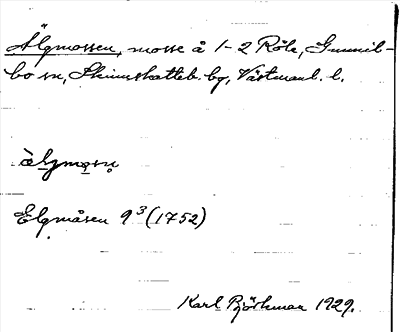 Älgmossen, mosse å 1-2 Röle, Gunnil-
bo sn, Skinnskatteb. bg, Västmanl. l.
älgmosn
Elgmåsen 9³ (1752)
Karl Björkman 1929.